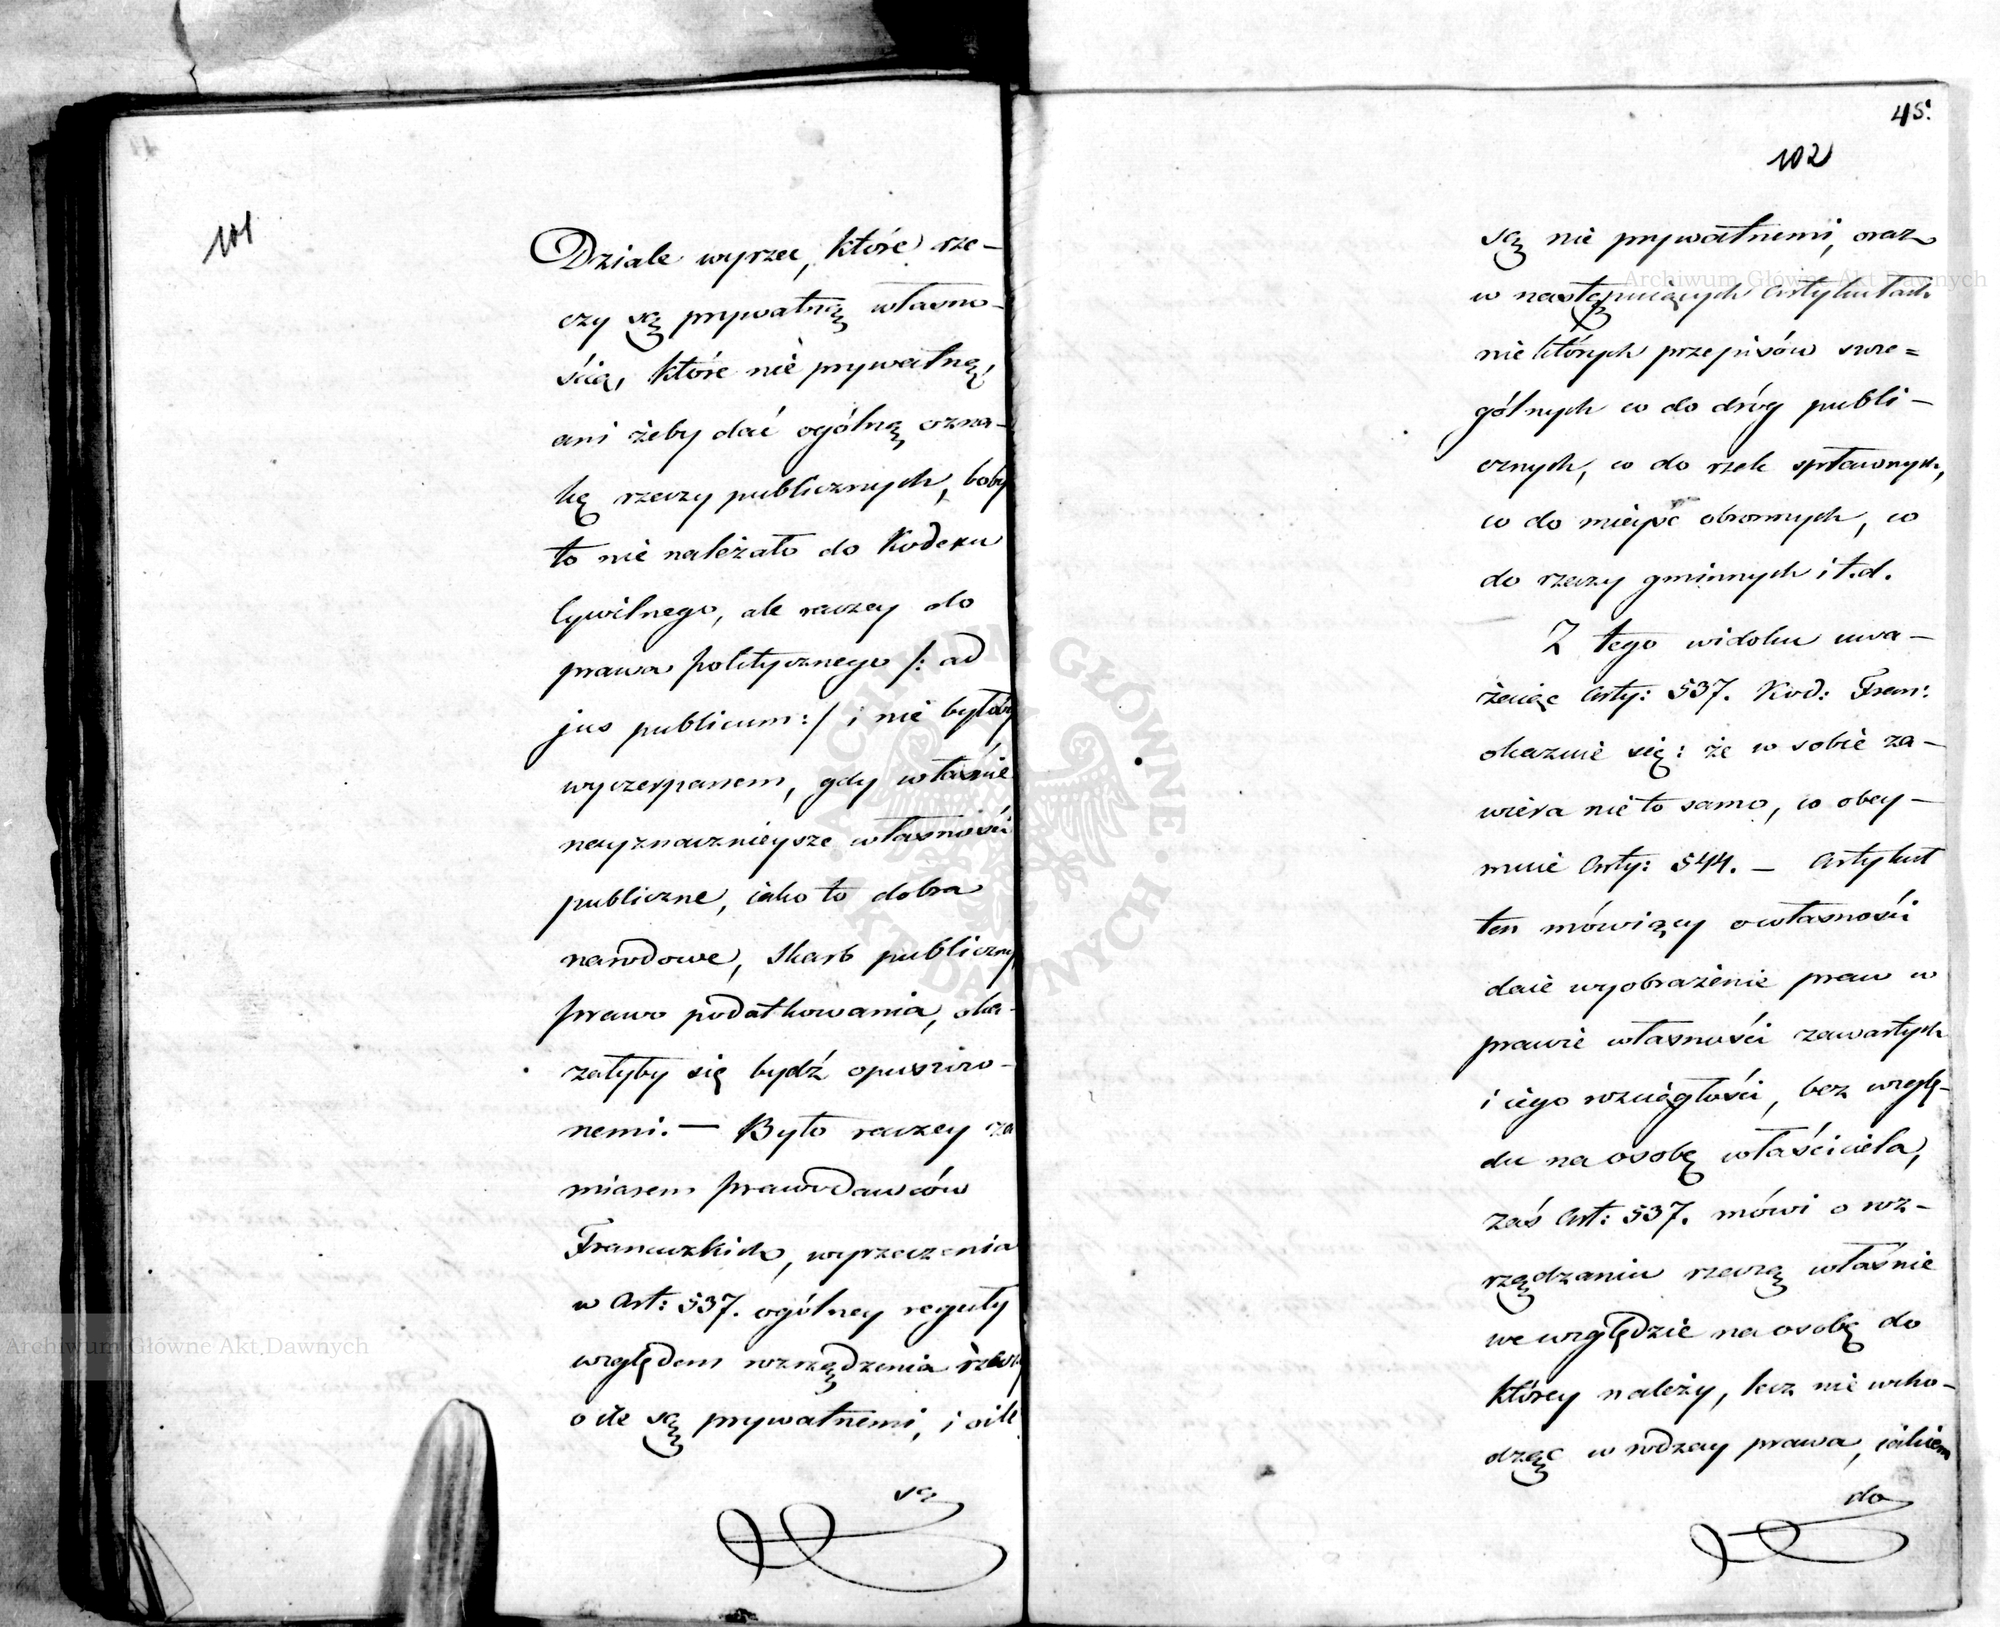 101
Dziale wyrzec, które rze–
czy są prywatną własno–
ścią, które nie prywatną,
ani żeby dać ogólną ozna–
kę rzeczy publicznych, boby
to nie należało do Kodexu
Cywilnego, ale raczey do
prawa politycznego /: ad
jus publicum :/ i nie byłoby
wyczerpanem, gdy właśnie
nayznacznieysze własności
publiczne, iako to dobra
narodowe, Skarb publiczny,
prawo podatkowania, oka–
załyby się bydź opuszczo–
nemi. — Było raczey za
miarem prawodawców
Francuzkich, wyrzeczenia
w Art: 537. ogólney reguły
względem rozrządzenia rzeczy
o ile są prywatnemi, i o ile
są
45.
102
są nie prywatnemi, oraz
w następuiących Artykułach
niektórych przepisów szcze=
gólnych co do dróg publi–
cznych, co do rzek spławnych,
co do mieysc obronnych, co
do rzeczy gminnych i t.d.
Z tego widoku uwa–
żaiąc Arty: 537. Kod: Fran:
okazuie się: że w sobie za–
wiera nie to samo, co obey–
muie Arty: 544. — Artykuł
ten mówiący o własności
daie wyobrażenie praw w
prawie własności zawartych
i iego rozciągłości, bez wzglę–
du na osobę właściciela,
zaś Art: 537. mówi o roz–
rządzaniu rzeczą właśnie
we względzie na osobę do
którey należy, lecz nie wcho–
dząc w rodzay prawa, iakiem
do
Archiwum Główne Akt Dawnych
Archiwum Główne Akt Dawnych
ARCHIWUM GŁÓWNE AKT DAWNYCH